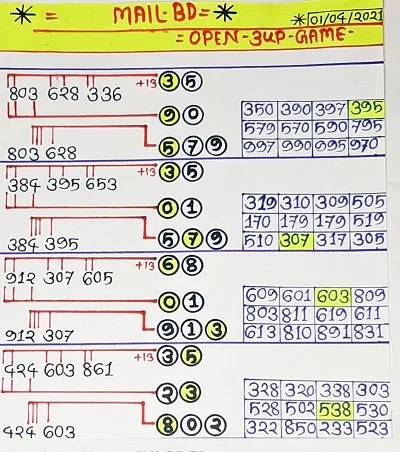 * = MAIL-BD=*
*01/04/2021
= OPEN-3UP-GAME-
803 628 336 +13 3 5
9 0
803 628 5 7 9
350 390 397 395
579 570 590 795
997 990 995 970
384 395 653 +13 3 5
0 1
384 395 5 7 9
319 310 309 505
170 179 179 519
510 307 317 305
912 307 605 +13 6 8
0 1
912 307 9 1 3
609 601 603 809
803 811 619 611
613 810 891 831
424 603 861 +13 3 5
2 3
424 603 8 0 2
328 320 338 303
528 502 538 530
322 850 233 523